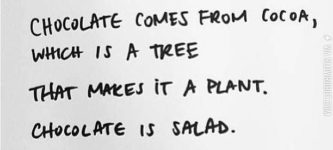 CHOCOLATE COMES FROM COCOA,
WHICH IS A TREE
THAT MAKES IT A PLANT.
CHOCOLATE IS SALAD.